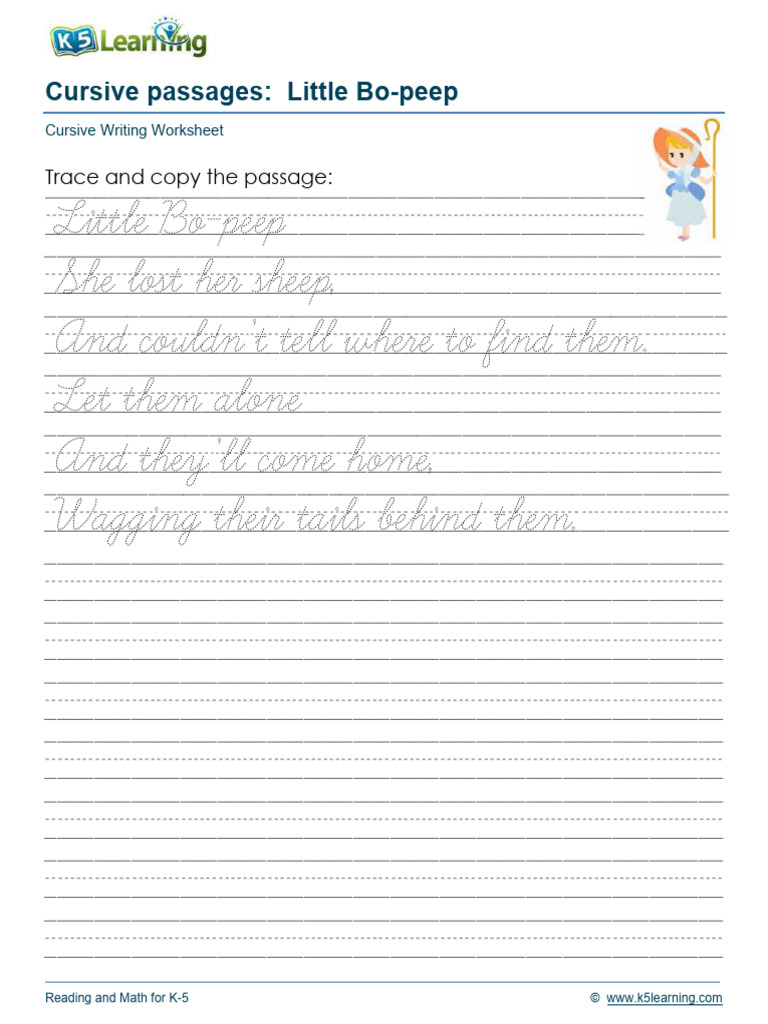 K5 Learning
Cursive passages: Little Bo-peep
Cursive Writing Worksheet
Trace and copy the passage:
Little Bo-peep
She lost her sheep,
And couldn't tell where to find them.
Let them alone
And they'll come home,
Wagging their tails behind them.
Reading and Math for K-5
© www.k5learning.com